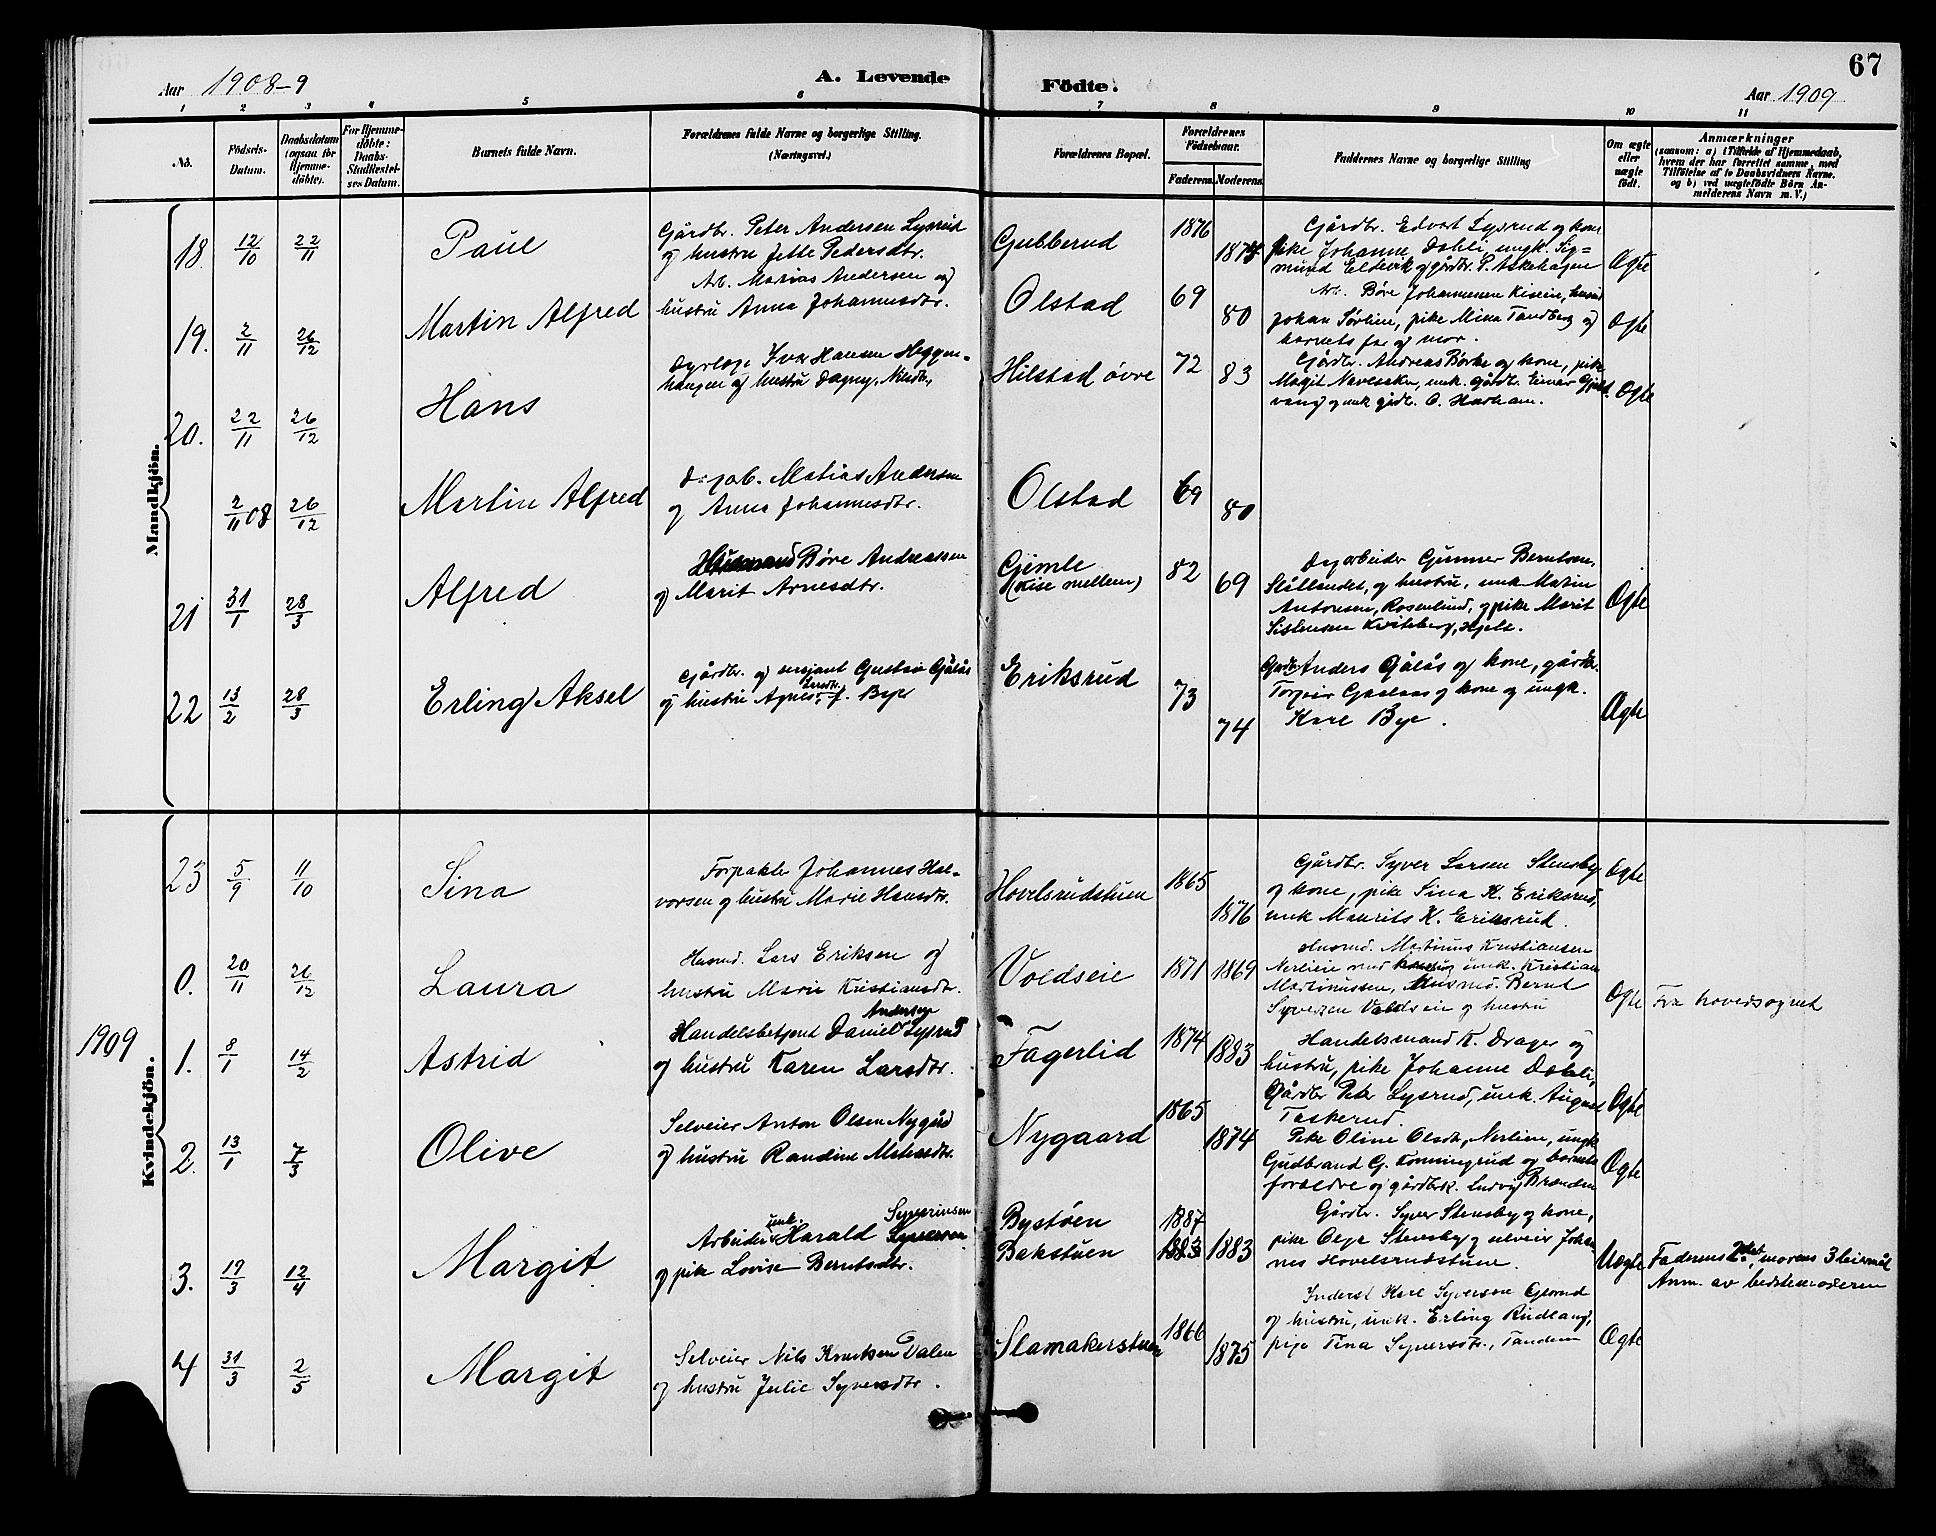 67
Aar 1908-9
A. Levende
Födte.
Aar 1909
1 2 3 4 5 6 7 8 9 10 11
No.
Födsels-
Datum.
Daabsdatum
(ogsaa for
Hjemme-
döbte).
For Hjemme-
döbte:
Daabs-
Stadfæstel-
ses Datum.
Barnets fulde Navn.
Forældrenes fulde Navne og borgerlige Stilling.
(Næringsvei.)
Forældrenes Bopæl.
Forældrenes
Födselsaar.
Faderens.
Moderens.
Faddernes Navne og borgerlige Stilling
Om ægte
eller
uægte
født.
Anmærkninger
(saasom: a) i Tilfælde af Hjemmedaab,
hvem der har forrettet samme, med
Tilföielse af to Daabsvidners Navne.
og b) ved uægtefödte Börn An-
melderens Navn m. V.)
Mandkjön.
18. 12/10 22/11 Paul
Gårdbr. Peter Andersen Lysrud
og hustru Jette Pedersdtr.
Gubberud 1876
Gårdbr. Edvart Lysrud og kone
pike Johanne Dahli, ungk. Sig-
mund Eldevik og gårdbr. P. Askehagen
Ægte
19. 2/11 26/12 Martin Alfred
Arb. Matias Andersen og
hustru Anna Johannesdtr.
Olstad 69 80
Arb. Böre Johannesen Kiseie, husmd
Johan Sørlien, pike Mina Tandberg og
barnets far og mor.
Ægte
20. 22/11 26/12 Hans
Dyrlæge Ivar Hansen Heggen-
haugen og hustru Dagny, Nilsdtr.
Hilstad övre 72 83
Gårdbr. Andreas Börke og kone, pike
Magit Naveseker, umk. gårdbr. Einar Gjest-
vang og umk gårdbr. O. Harham.
Ægte
2/11 08 26/12 Martin Alfred
Matias Andersen
og Anna Johannesdtr.
Olstad 69 80
21 31/1 28/3 Alfred
Böre Andreassen
og Marit Arnesdtr.
Gjemle
(Kise mellem) 82 69
Dagarbeider Gunner Berntsen,
Stållandet, og hustru, umk Martin
Antonsen, Rosenlund, og pike Marit
Sistensen Kviteberg, Hjelt.
Ægte
22 13/2 28/3 Erling Aksel
Gårdbr. og sersjant Gustav Gålås
og hustru Agnes, f. Bye
Eriksrud 73 74
Gårdbr. Anders Gålås og kone, gårdbr.
Torger Gaalaas og kone og ungk.
Karl Bye.
Ægte
Kvindekjön.
23 5/9 11/10 Sina
Forpakter Johannes Hal-
vorsen og hustru Marie Hansdtr.
Hovelsrudstuen 1865 1876
Gårdbr. Syver Larsen Stensby
og kone, pike Sina K. Eriksrud,
umk Maurits K. Eriksrud.
Ægte
0. 20/11 26/12 Laura
Husmd. Lars Eriksen og
hustru Marie Kristiansdtr.
Voldseie 1871 1869
Husmd. Martinus Kristiansen
Nerlieie med umk. Kristian
Martinussen, Husmd. Bernt
Syversen Voldseie og hustru
Ægte
Fra hovedsognet
1909
1. 8/1 14/2 Astrid
Andersen
Handelsbetjent Daniel Lysrud
og hustru Karen Larsdtr.
Fagerlid 1874 1883
Handelsmand K. Drager og
hustru, pike Johanne Dahli,
Gårdbr Peter Lysrud, umk. August
Taskerud.
Ægte
2. 13/1 7/3 Olive
Selveier Anton Olsen Nygård
og hustru Randine Matsdtr.
Nygaard 1865 1874
Pike Oline Olsdtr, Nerlien, ungk
Gudbrand G. Konningrud og barnets
foreldre og gårdbr. Ludvig Brænden
Ægte
3. 19/3 12/4 Margit
umk. Syverinsen
Arbeider Harald Syversen
og pike Lovise Berntsdtr.
Bystöen 1887
Bakstuen 1883 1883
Gårdbr. Syver Stensby og kone,
pike Olga Stensby og selveier Johan-
nes Hovelsrudstuen.
Uægte
Faderens 2det, morens 3 leiemål
Anm. av bedstemoderen
4 31/3 2/5 Margit
Selveier Nils Knutsen Dalen
og hustru Julie Syversdtr.
Slamakerstuen 1866 1875
Inderst Karl Syversen Gjerud
og hustru, umk. Erling Rudlang,
pige Tina Syversdtr., Tanden
Ægte